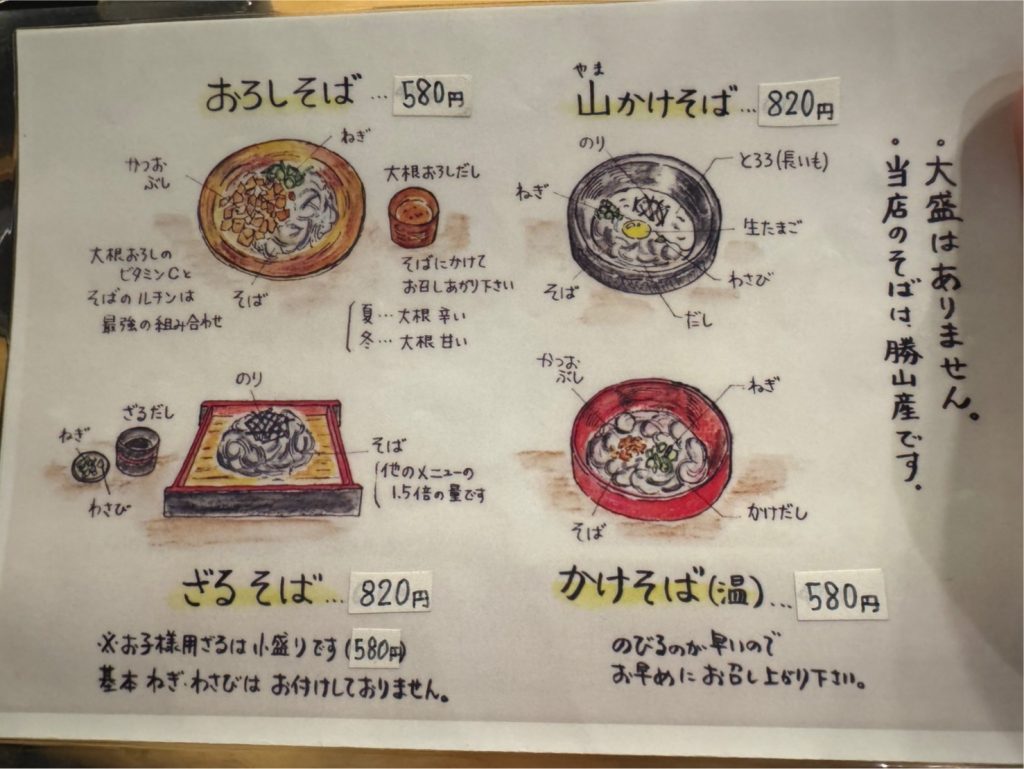 おろしそば…580円
ねぎ
かつお
ぶし
大根おろしだし
大根おろしの
ビタミンCと
そばのルチンは
最強の組み合わせ
そば
そばにかけて
お召しあがり下さい
夏…大根辛い
冬…大根甘い
やま
山かけそば…820円
のり
とろろ(長いも)
ねぎ
生たまご
わさび
そば
だし
・大盛はありません。
・当店のそばは、勝山産です.
のり
ざるだし
ねぎ
わさび
そば
他のメニューの
1.5倍の量です
ざるそば…820円
※お子様用ざるは小盛りです(580円)
基本ねぎ・わさびはお付けしておりません。
かつお
ぶし
ねぎ
そば
かけだし
かけそば(温)…580円
のびるのが早いので
お早めにお召し上がり下さい。